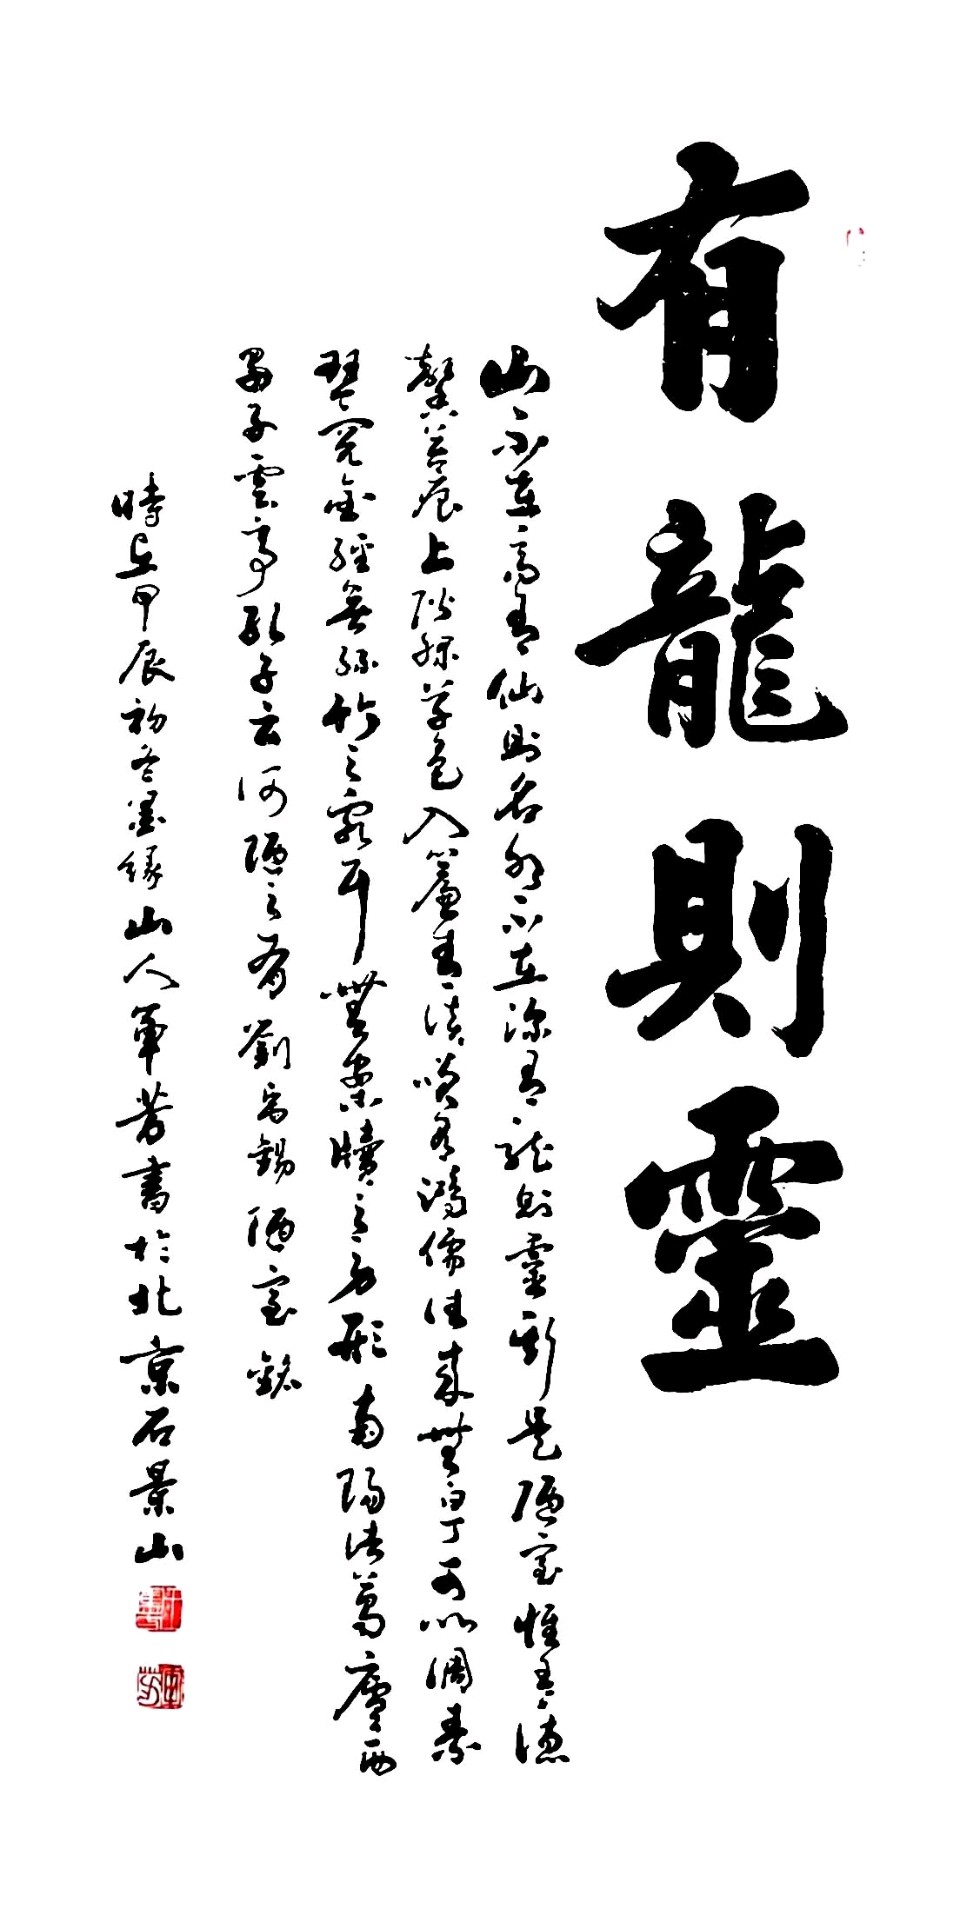 有龍則靈
山不在高有仙則名水不在深有龍則靈斯是陋室惟吾德
馨苔痕上階綠草色入簾青談笑有鴻儒往來無白丁可以調素
琴閱金經無絲竹之亂耳無案牘之勞形南陽諸葛廬西
蜀子雲亭孔子云何陋之有劉禹錫陋室銘
時在甲辰初冬墨緣山人軍芳書於北京石景山